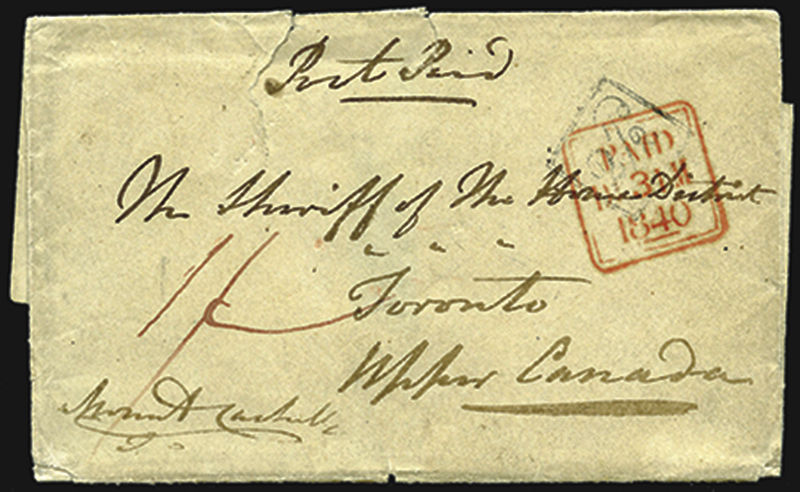 Post Paid
PAID
1840
The Sheriff of The Home District
Toronto
Upper Canada
Mount Cashell